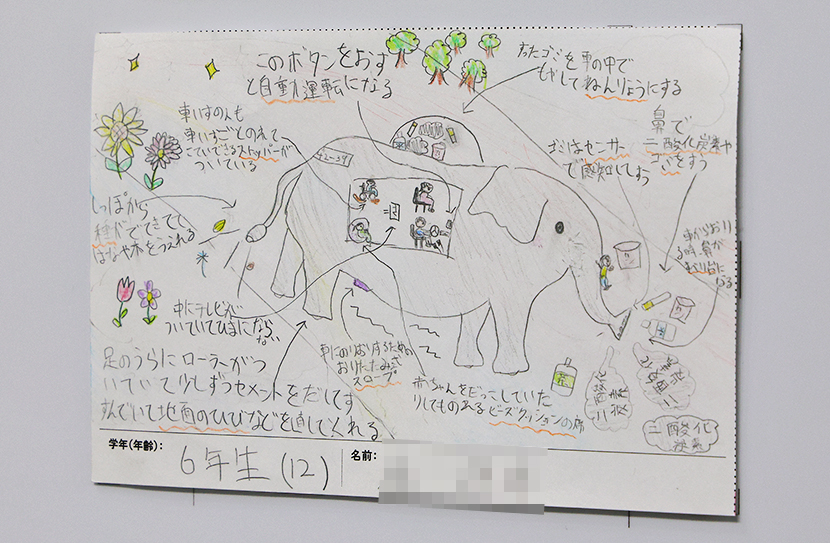 このボタンをおす
と自動運転になる
すったゴミを車の中で
もやしてねんりょうにする
車いすの人も
車いすごとのれて
こていできるストッパーが
ついている
ゴミはセンサー
で感知してすう
鼻で
二酸化炭素や
ゴミをすう
42-39
しっぽから
種がでてきて
はなや木をうえれる
車からおり
る時、鼻が
すべり台になる
中にテレビが
ついていてひまになら
ない
車にのりおりするための
おりたたみ式
スロープ
赤ちゃんをだっこしていた
りしてものれるビーズクッションの席
足のうらにローラーがつ
いていて少しずつセメントをだしてす
すんでいて地面のひびなどを直してくれる
二酸化
炭素
二酸化
炭素
二酸化
炭素
学年(年齢): 6年生(12)
名前: